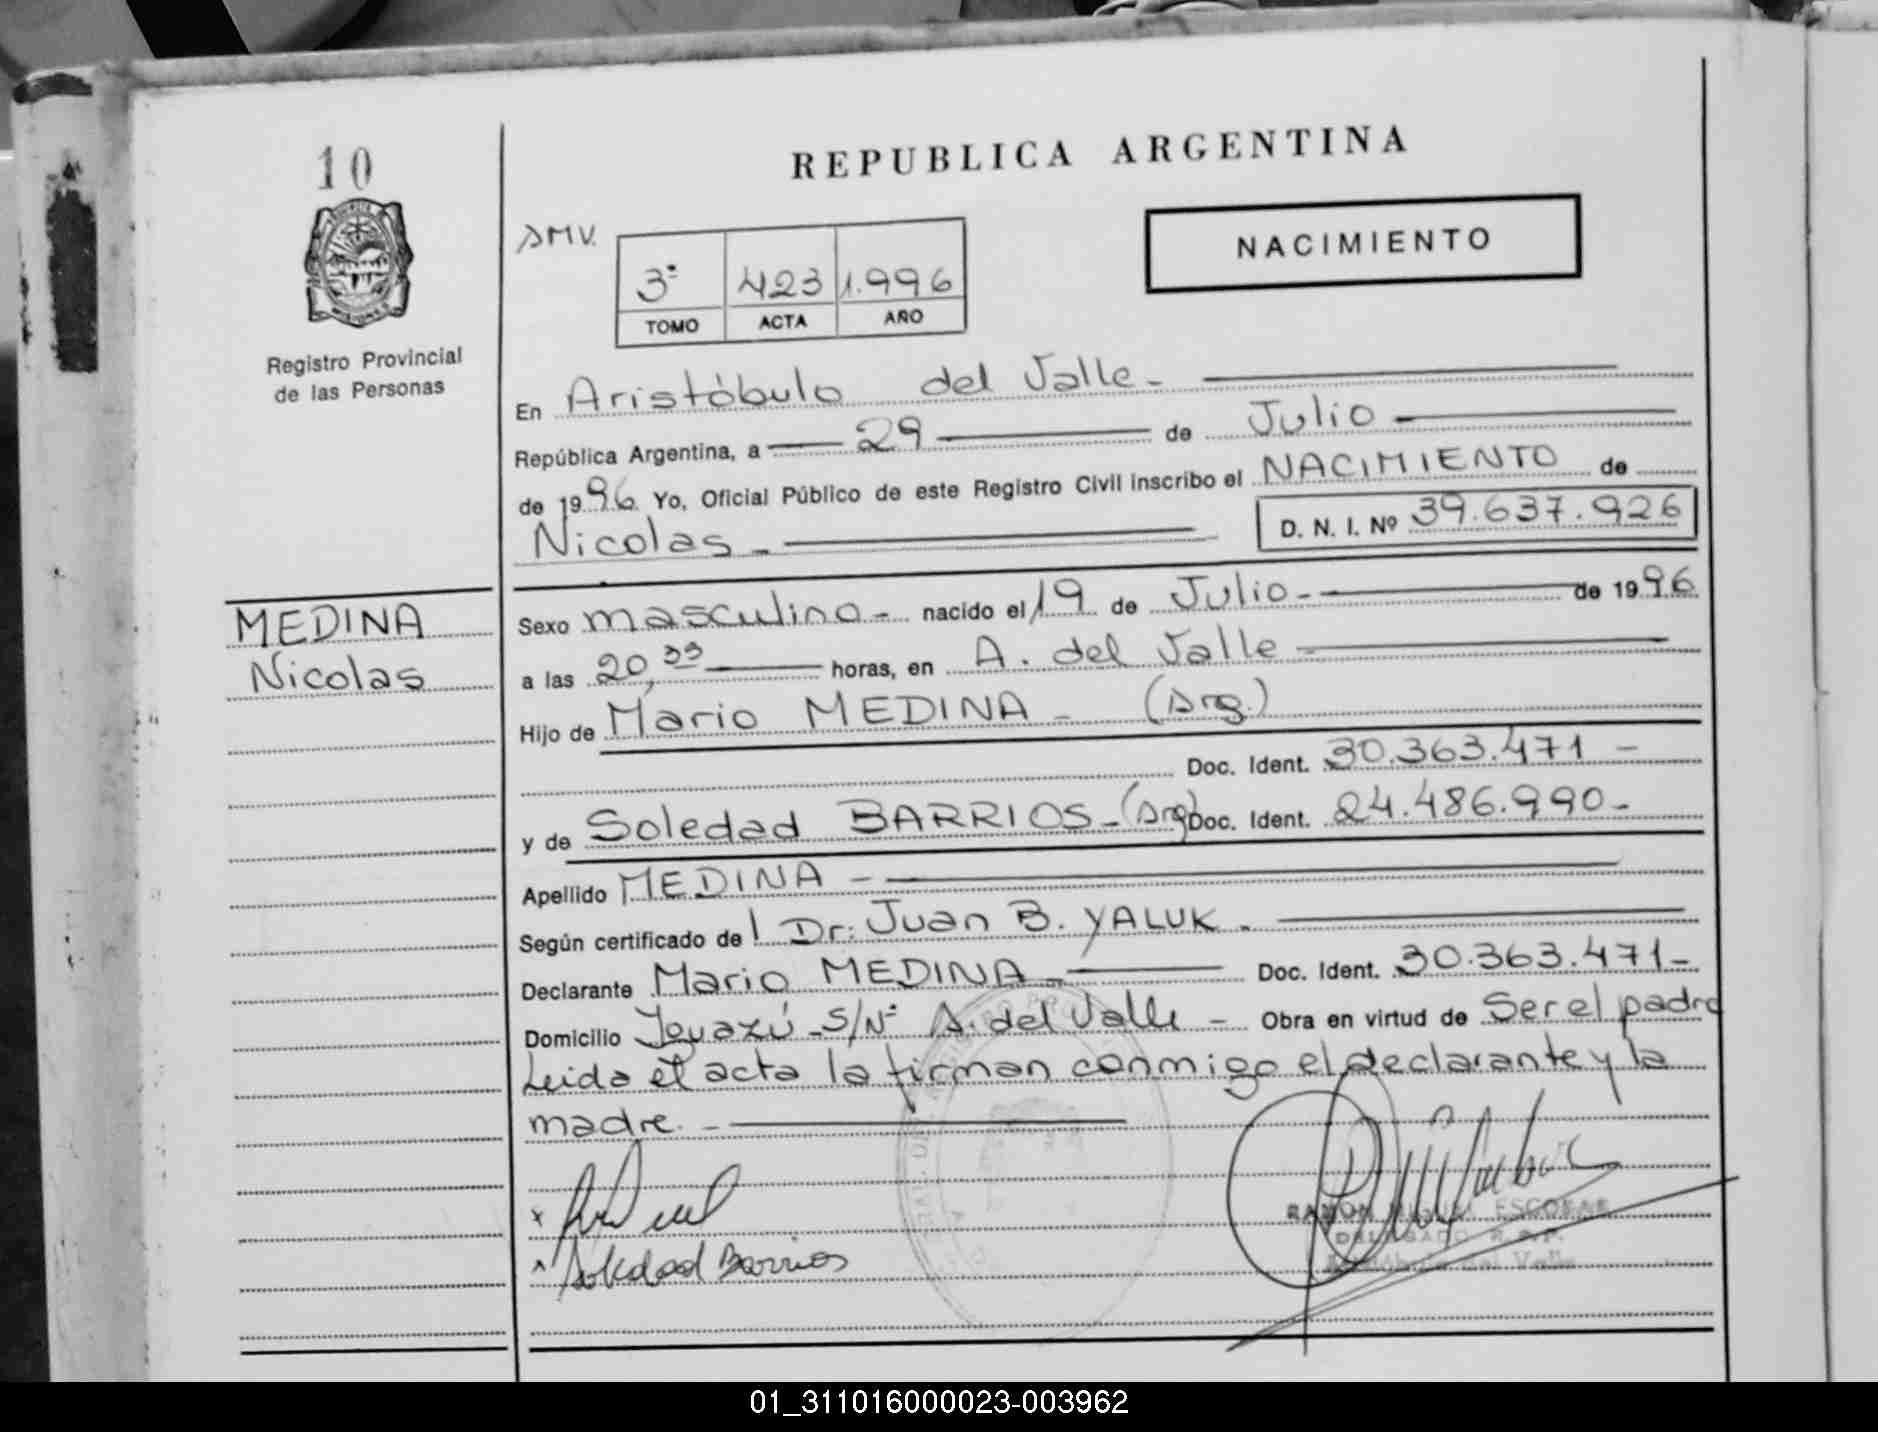 10
REPUBLICA ARGENTINA
NACIMIENTO
3º 423 1.996
TOMO ACTA AÑO
Registro Provincial
de las Personas
En Aristóbulo del Valle-
República Argentina, a 29 de Julio
de 1996 Yo, Oficial Público de este Registro Civil inscribo el NACIMIENTO de
Nicolas- D. N. I. Nº 39.637.926
MEDINA
Nicolas
Sexo masculino- nacido el 19 de Julio- de 1996
a las 20, horas, en A. del Valle
Hijo de Mario MEDINA - (Arg.)
Doc. Ident. 30.363.471 -
y de Soledad BARRIOS-(Arg) Doc. Ident. 24.486.990-
Apellido MEDINA -
Según certificado del Dr. Juan B. YALUK.
Declarante Mario MEDINA- Doc. Ident. 30.363.471-
Domicilio Iguazú S/Nº A. del Valle - Obra en virtud de Ser el padre
Leida el acta la firman conmigo el declarante y la
madre. -
Soledad Barrios
RAMON MIGUEL ESCOBAR
DELEGADO R.P.P.
Aristóbulo del Valle
01_311016000023-003962